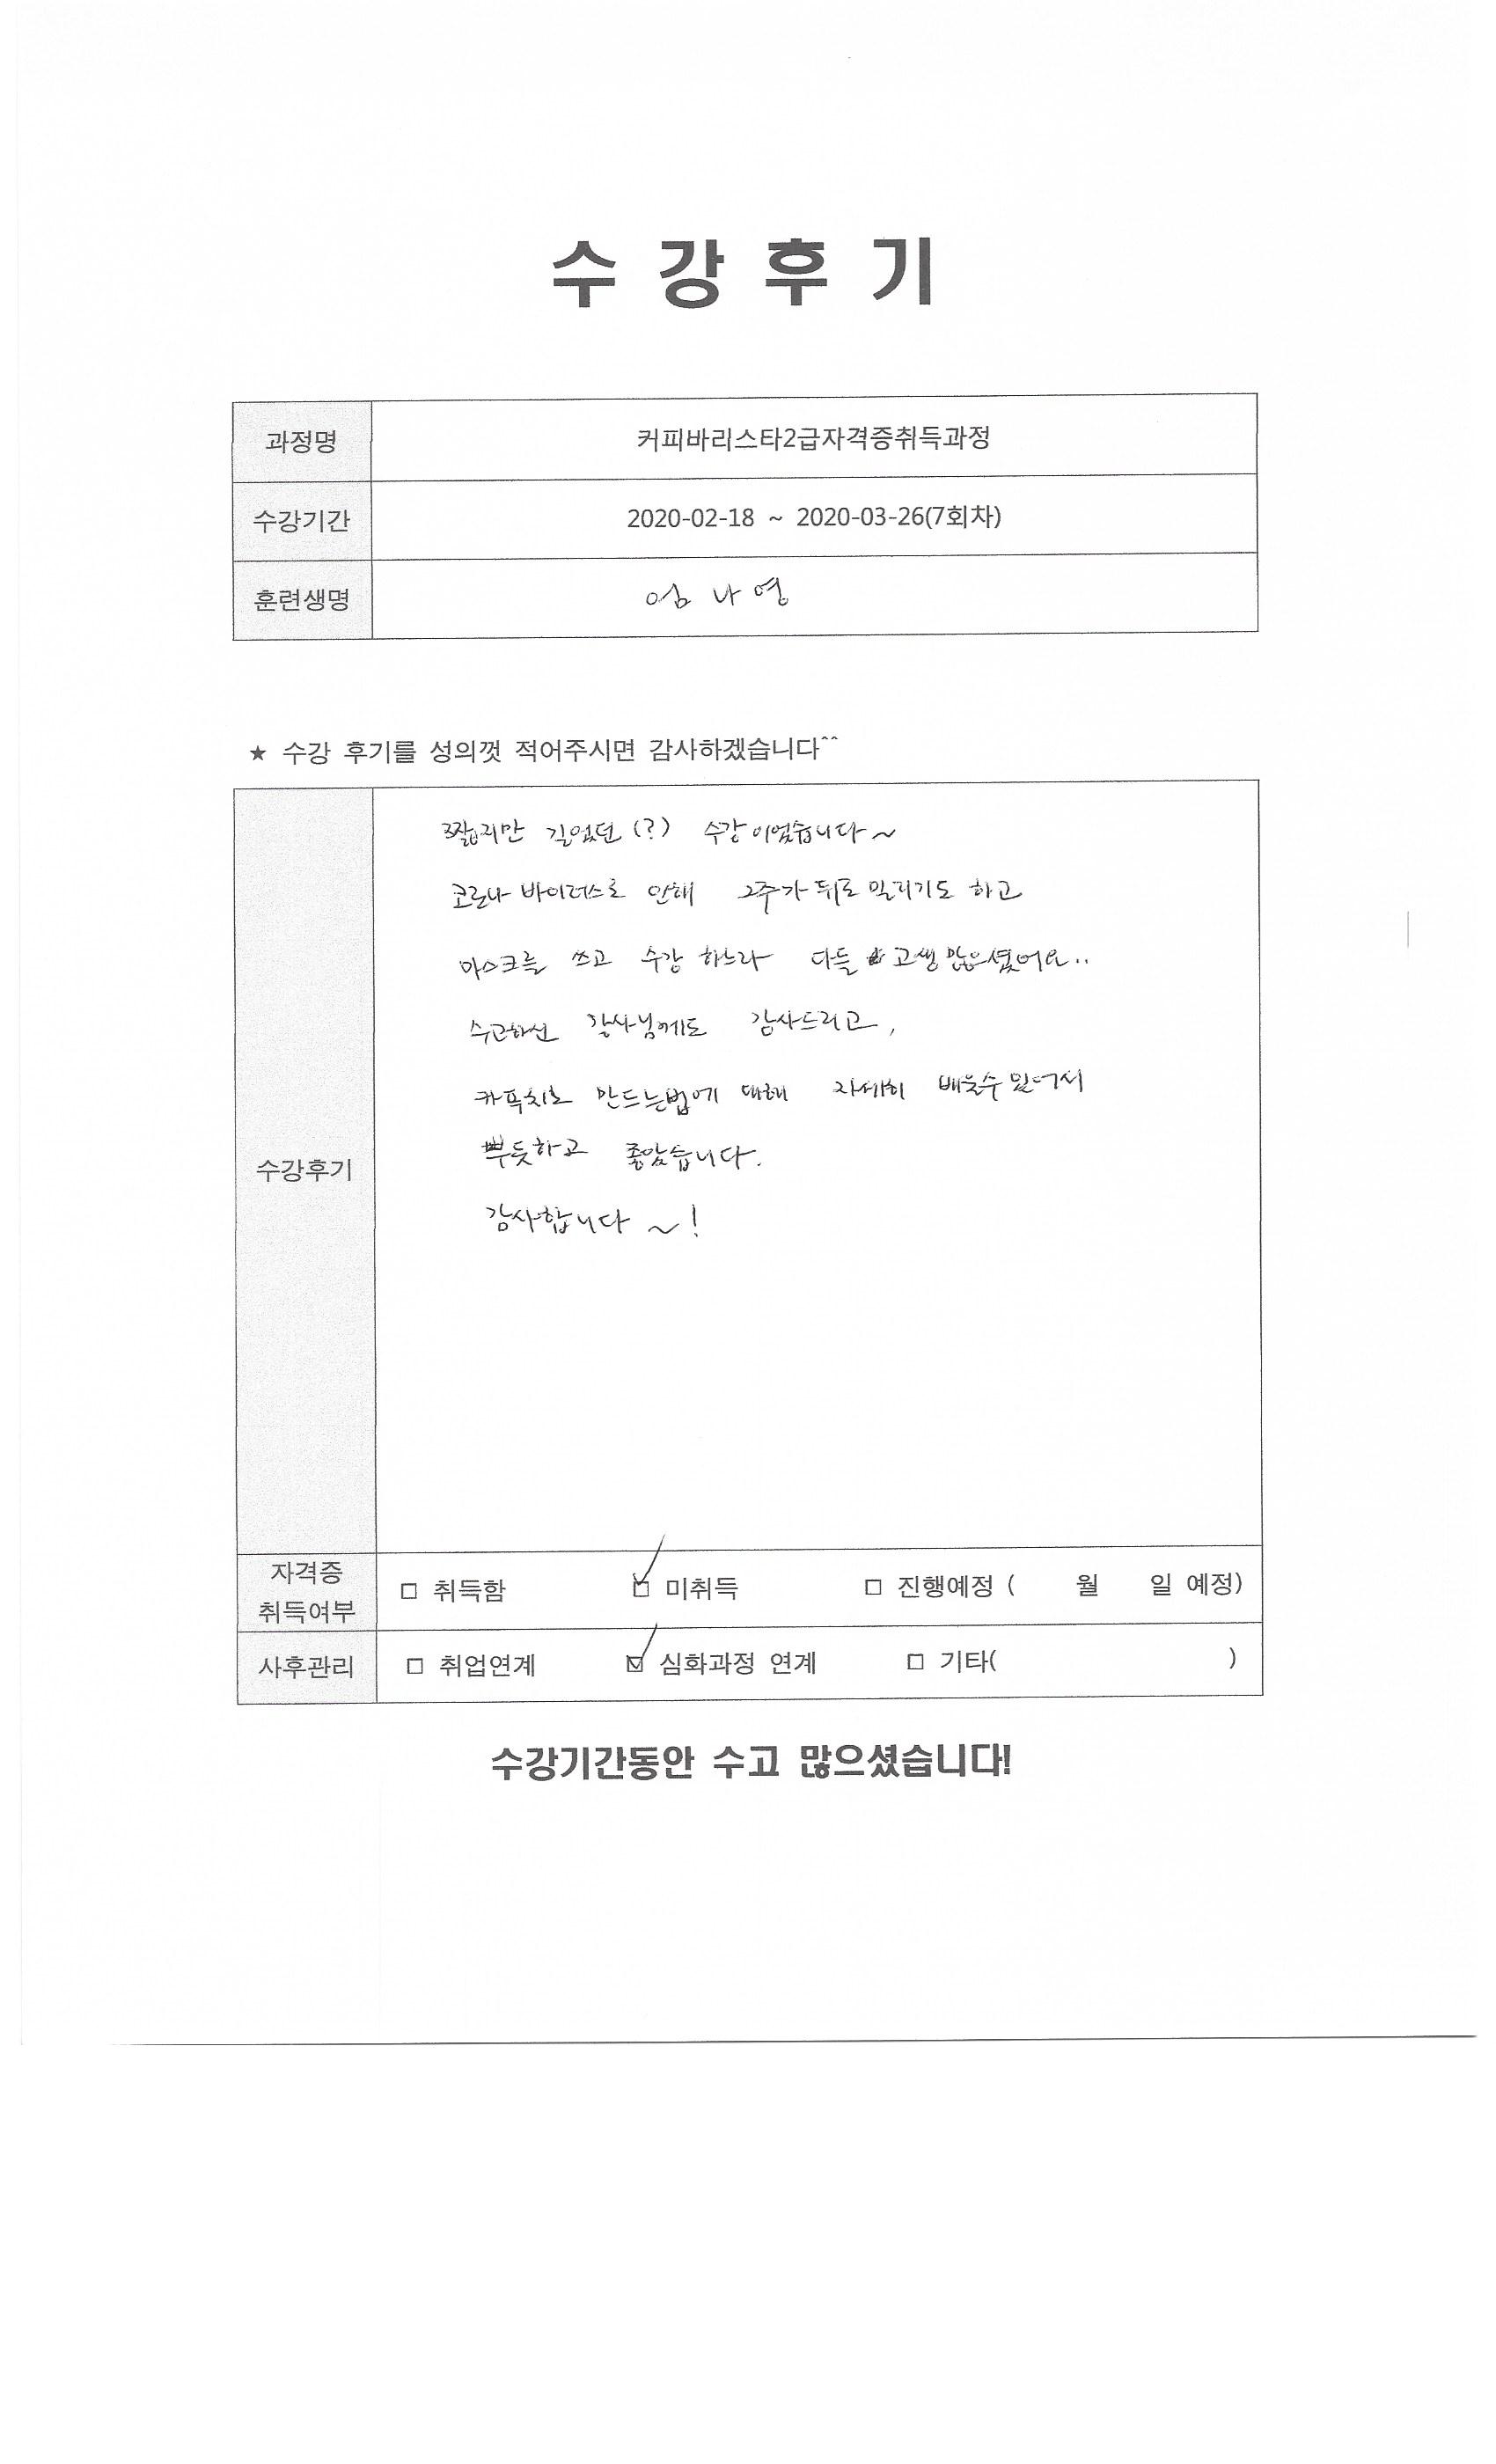 수강후기
과정명 커피바리스타2급자격증취득과정
수강기간 2020-02-18 ~ 2020-03-26(7회차)
훈련생명 엄나영
★ 수강 후기를 성의껏 적어주시면 감사하겠습니다^^
짧지만 길었던(?) 수강이었습니다~
코로나 바이러스로 인해 2주가 뒤로 밀리기도 하고
마스크를 쓰고 수강 하느라 다들 고생 많으셨어요..
수고하신 강사님께도 감사드리고,
카푸치노 만드는법에 대해 자세히 배울수 있어서
뿌듯하고 좋았습니다.
수강후기
감사합니다~!
자격증
취득여부
□ 취득함 ☑ 미취득 □ 진행예정 ( 월 일 예정)
사후관리 □ 취업연계 ☑ 심화과정 연계 □ 기타( )
수강기간동안 수고 많으셨습니다!